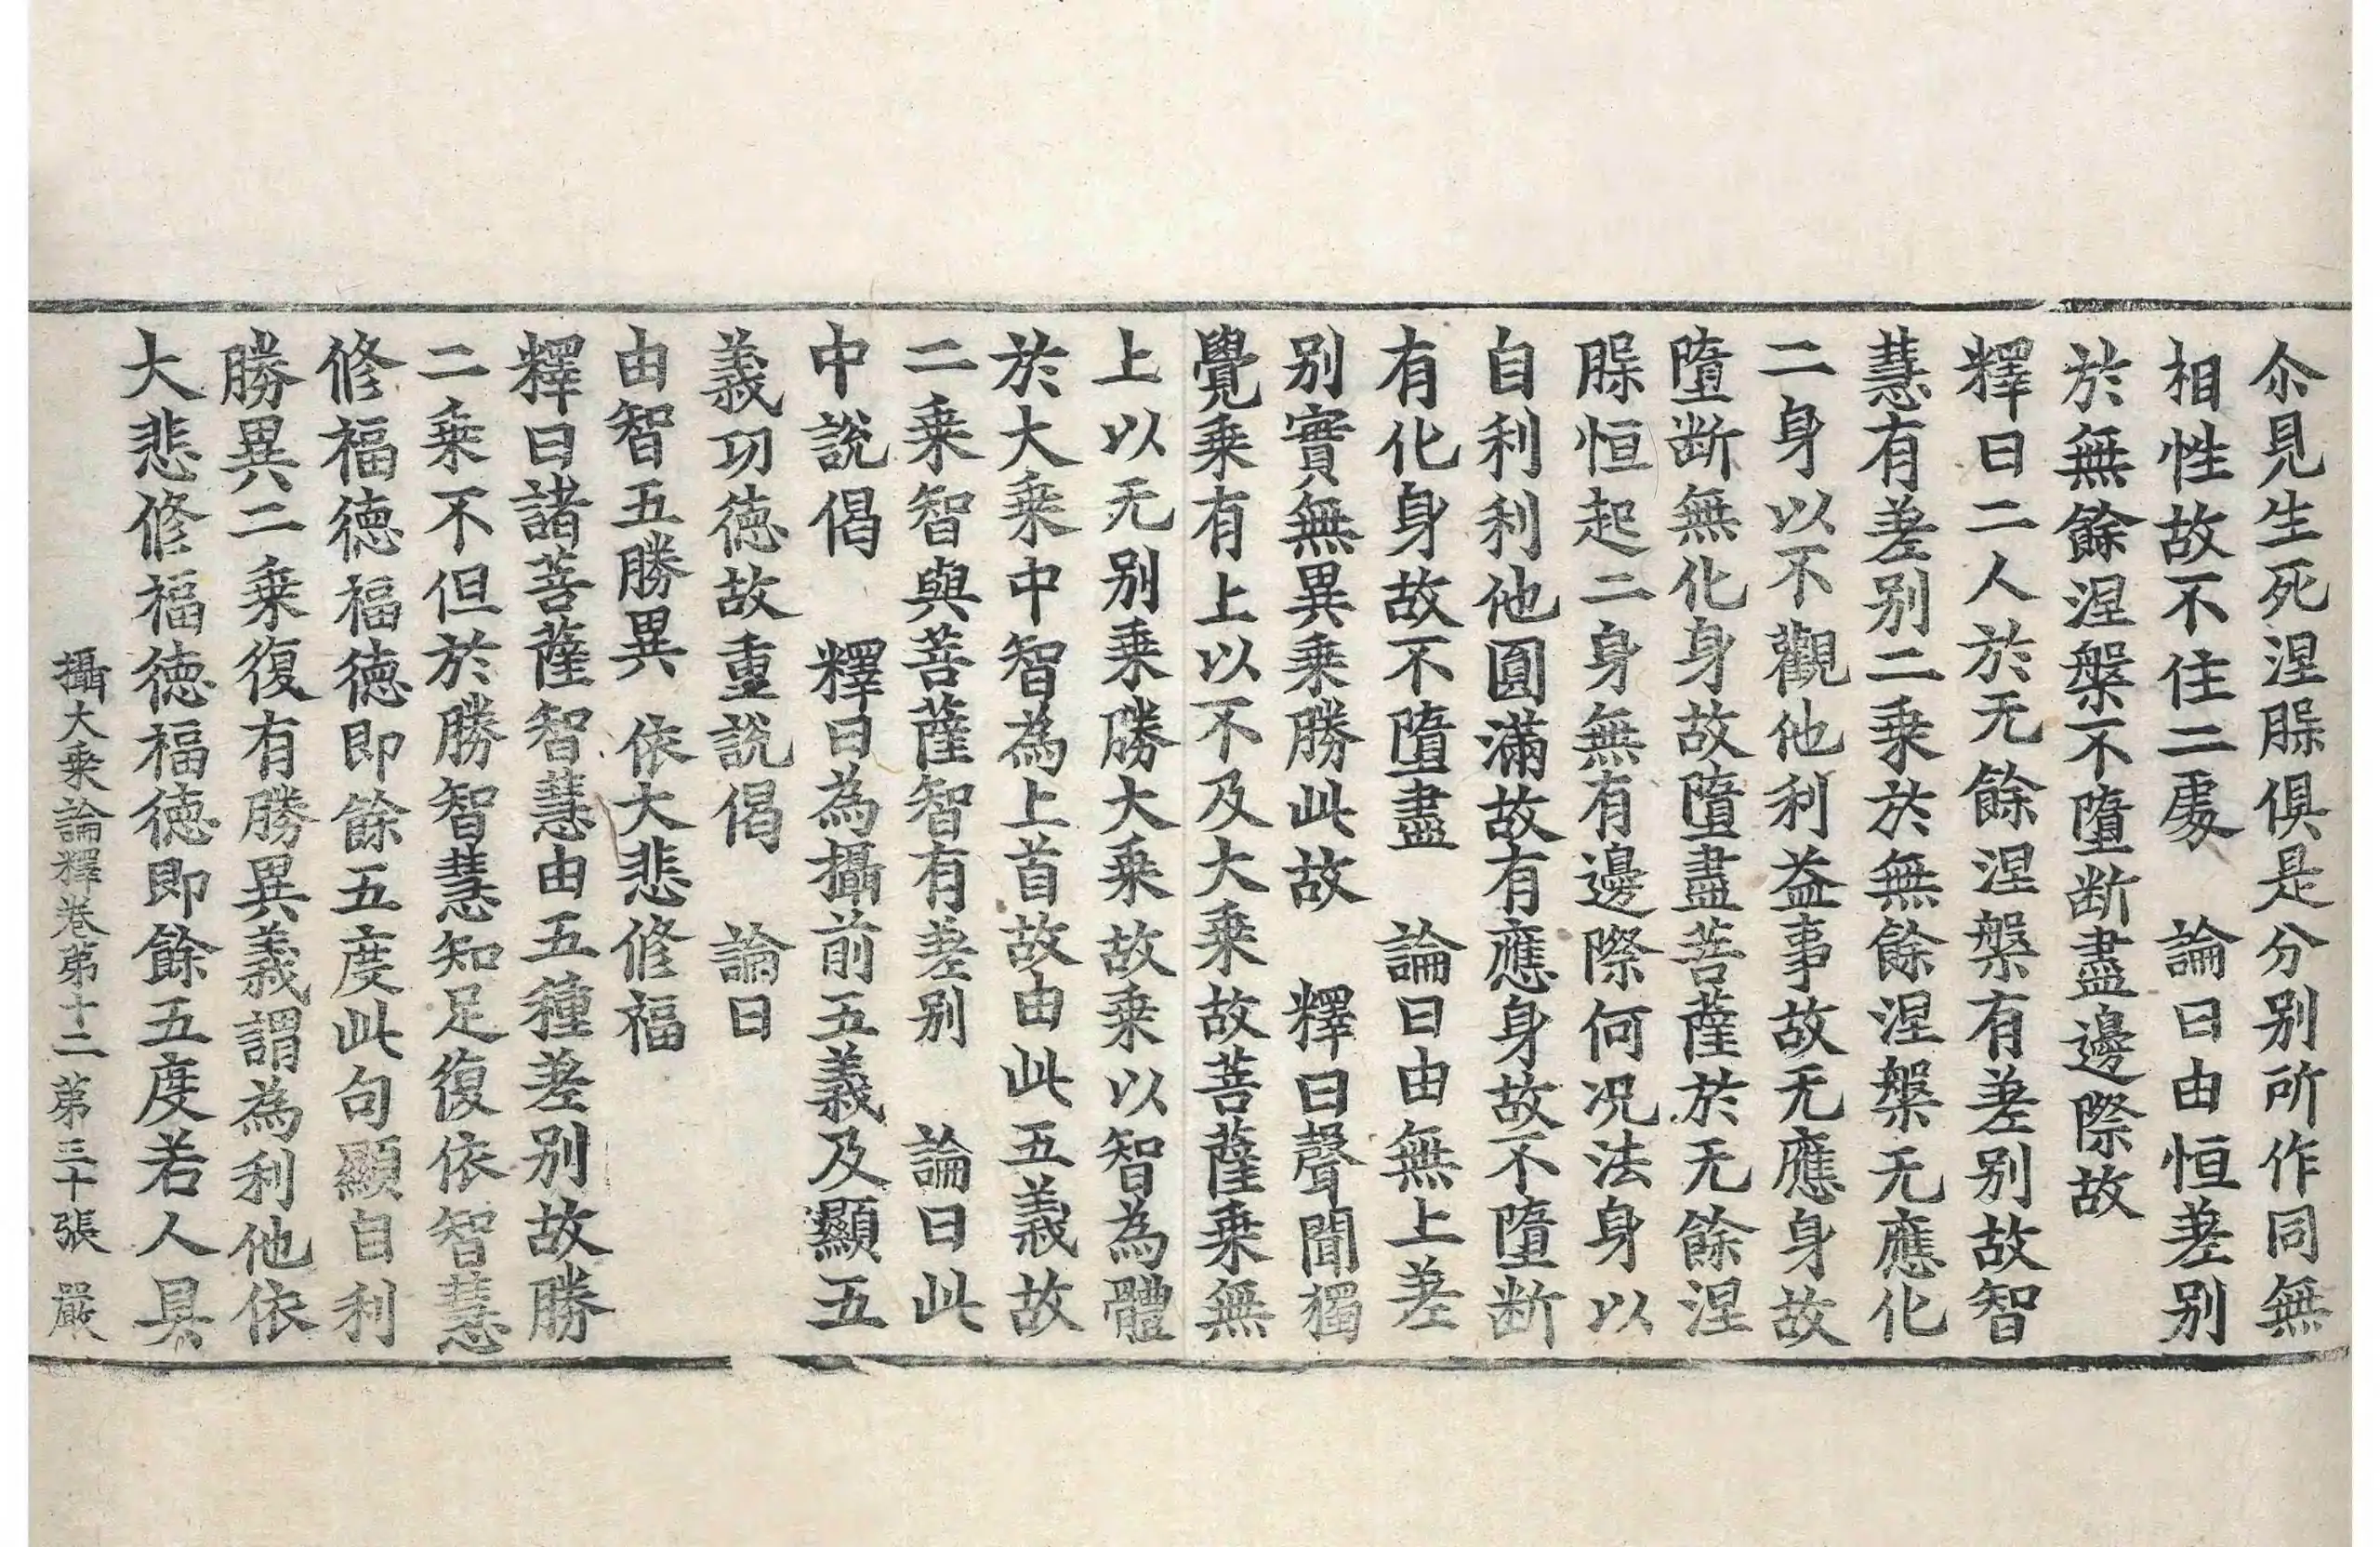 尒見生死涅槃俱是分別所作同無
相性故不住二處　論曰由恒差別
於無餘涅槃不墮断盡邊際故
釋曰二人於无餘涅槃有差別故智
慧有差別二乗於無餘涅槃无應化
二身以不觀他利益事故无應身故
墮断無化身故墮盡菩薩於无餘涅
槃恒起二身無有邊際何况法身以
自利利他圓滿故有應身故不墮断
有化身故不墮盡　論曰由無上差
別實無異乗勝此故　釋曰聲聞獨
覺乗有上以不及大乗故菩薩乗無
上以无別乗勝大乗故乗以智為體
於大乗中智為上首故由此五義故
二乗智與菩薩智有差別　論曰此
中說偈　釋曰為攝前五義及顯五
義功徳故重說偈　論曰
由智五勝異　依大悲修福
釋曰諸菩薩智慧由五種差別故勝
二乗不但於勝智慧知足復依智慧
修福徳福徳即餘五度此句顯自利
勝異二乗復有勝異義謂為利他依
大悲修福徳福徳即餘五度若人具
攝大乗論釋卷第十二　第三十張　嚴